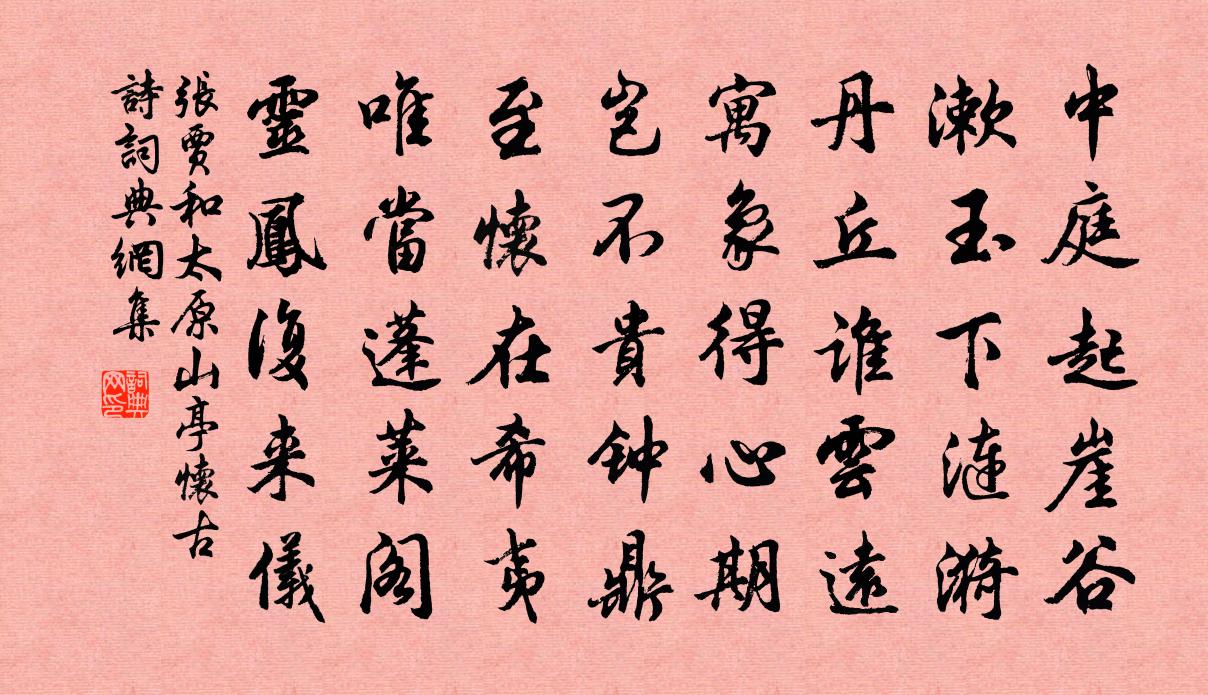 中庭起崖谷
漱玉下漣漪
丹丘誰雲遠
寓象得心期
豈不貴钟鼎
至懷在希夷
唯當蓬萊閣
靈鳳復来儀
張賈和太原山亭懷古
詩詞典網集
詞典
网印